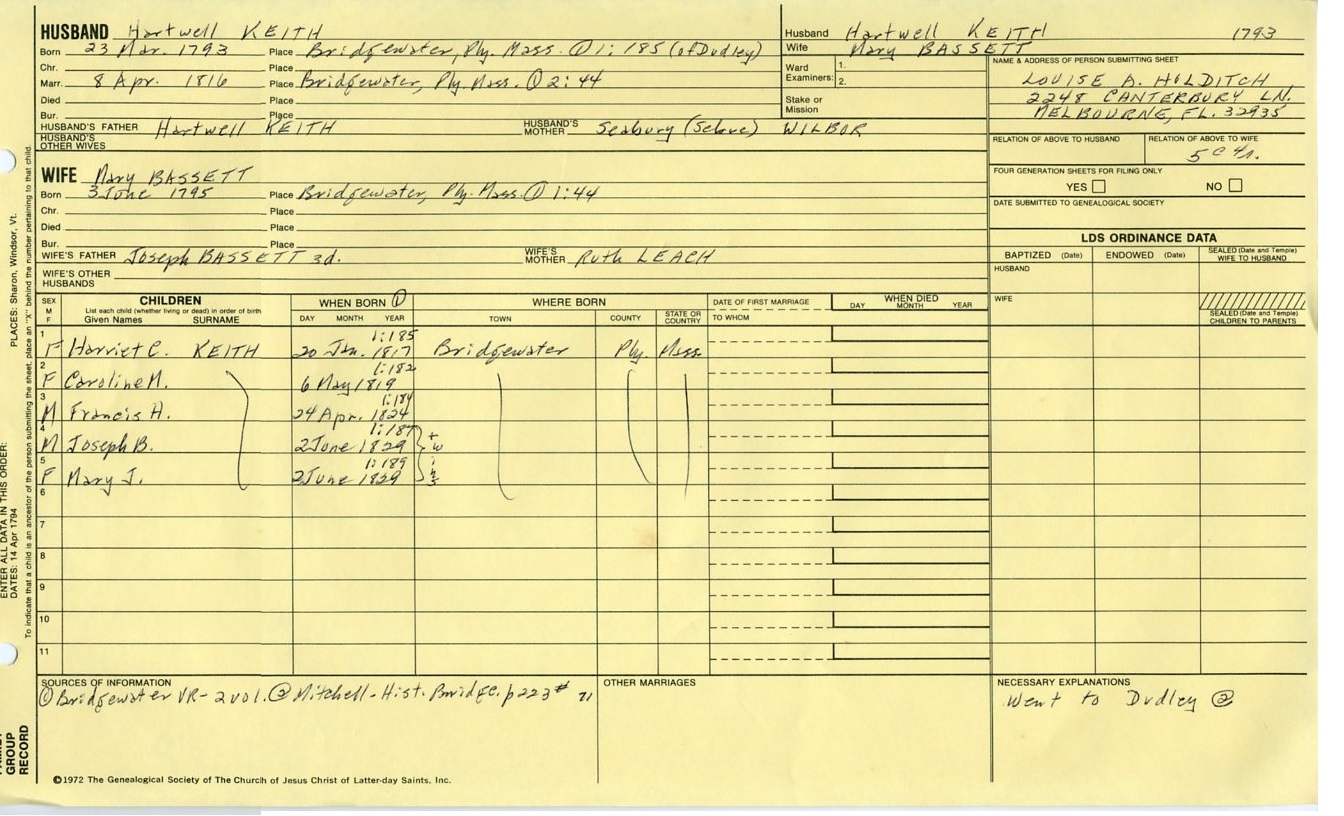 HUSBAND Hartwell KEITH
Born 23 Mar. 1793 Place Bridgewater, Ply. Mass. ① 1:185 (of Dudley)
Chr. Place
Marr. 8 Apr. 1816 Place Bridgewater, Ply. Mass. ① 2:44
Died Place
Bur. Place
HUSBAND'S FATHER Hartwell KEITH HUSBAND'S MOTHER Seabury WILBOR
HUSBAND'S OTHER WIVES
Husband Hartwell KEITH 1793
Wife Mary BASSETT
Ward Examiners: 1. 2.
Stake or Mission
NAME & ADDRESS OF PERSON SUBMITTING SHEET
LOUISE A. HOLDITCH
2248 CANTERBURY LN.
MELBOURNE, FL. 32935
RELATION OF ABOVE TO HUSBAND RELATION OF ABOVE TO WIFE
5C
FOUR GENERATION SHEETS FOR FILING ONLY
YES NO
DATE SUBMITTED TO GENEALOGICAL SOCIETY
WIFE Mary BASSETT
Born 3 June 1795 Place Bridgewater, Ply. Mass. ① 1:44
Chr. Place
Died Place
Bur. Place
WIFE'S FATHER Joseph BASSETT 3d. WIFE'S MOTHER Ruth LEACH
WIFE'S OTHER HUSBANDS
LDS ORDINANCE DATA
BAPTIZED (Date) ENDOWED (Date) SEALED (Date and Temple) WIFE TO HUSBAND
HUSBAND
WIFE
SEALED (Date and Temple) CHILDREN TO PARENTS
SEX M F CHILDREN WHEN BORN ① WHERE BORN DATE OF FIRST MARRIAGE WHEN DIED
List each child (whether living or dead) in order of birth
Given Names SURNAME DAY MONTH YEAR TOWN COUNTY STATE OR COUNTRY TO WHOM DAY MONTH YEAR
1 1:185
F Harriet C. KEITH 20 Jan. 1817 Bridgewater Ply. Mass.
2 1:182
F Caroline M. 6 May 1819
3 1:184
M Francis H. 24 Apr. 1824
4 1:187
M Joseph B. 2 June 1829 twins
5 1:189
F Mary J. 2 June 1829
6
7
8
9
10
11
SOURCES OF INFORMATION
① Bridgewater VR- 2 vol. ② Mitchell-Hist. Bridge. p223 # 71
OTHER MARRIAGES
NECESSARY EXPLANATIONS
Went to Dudley ②
©1972 The Genealogical Society of The Church of Jesus Christ of Latter-day Saints, Inc.
ENTER ALL DATA IN THIS ORDER:
DATES: 14 Apr 1794 PLACES: Sharon, Windsor, Vt.
To indicate that a child is an ancestor of the person submitting the sheet, place an "X" behind the number pertaining to that child.
GROUP
RECORD